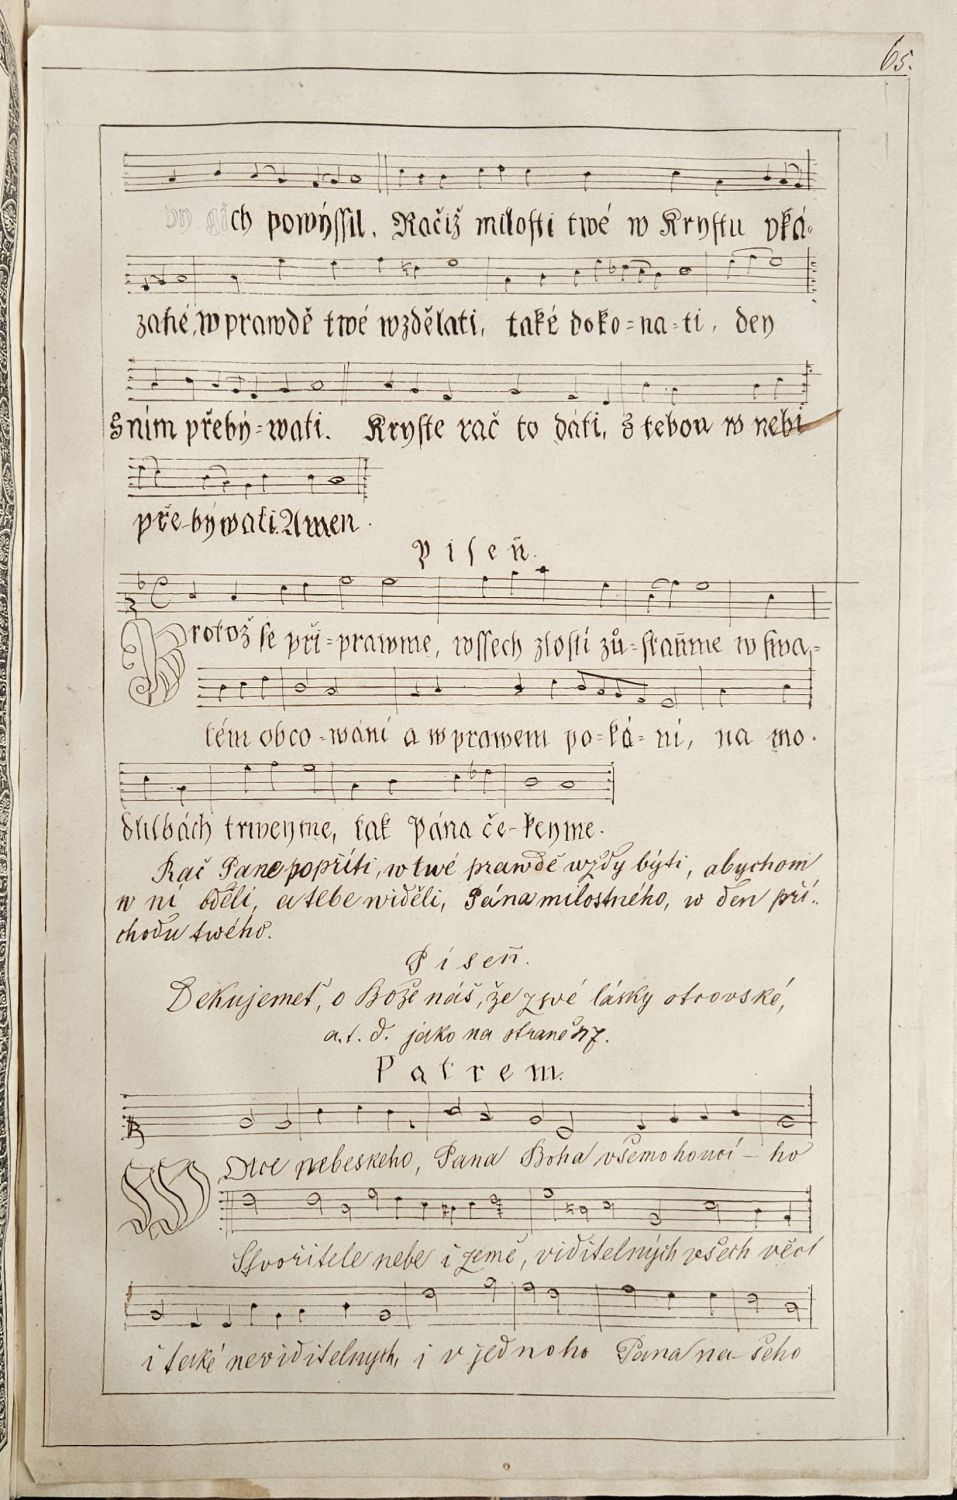 65.
by gich powýssil. Račiž milosti twé w Krystu vká-
zané, w prawdě twé wzdělati, také doko-na-ti, dey
s ním přebý-wati. Kryste rač to dáti, s tebou w nebi
pře-býwati. Amen.
Píseň.
Protož se při-prawme, wssech zlostí zů-staňme w swa-
tém obco-wání a w prawem po-ká-ní, na mo-
dlitbách trweyme, tak Pána če-keyme.
Rač Pane popříti, w twé prawdě wždy býti, abychom
w ní bděli, a tebe widěli, Pána milostného, w den pří-
chodu twého.
Píseň.
Dekujemeť, o Bože náš, že z své lásky otcovské,
a. t. d. jako na straně
Patrem.
W Otce nebeskeho, Pana Boha všemohoucí-ho
Stvořitele nebe i země, viditelných všech věcí
i také neviditelnych, i v jednoho Pana na-šeho